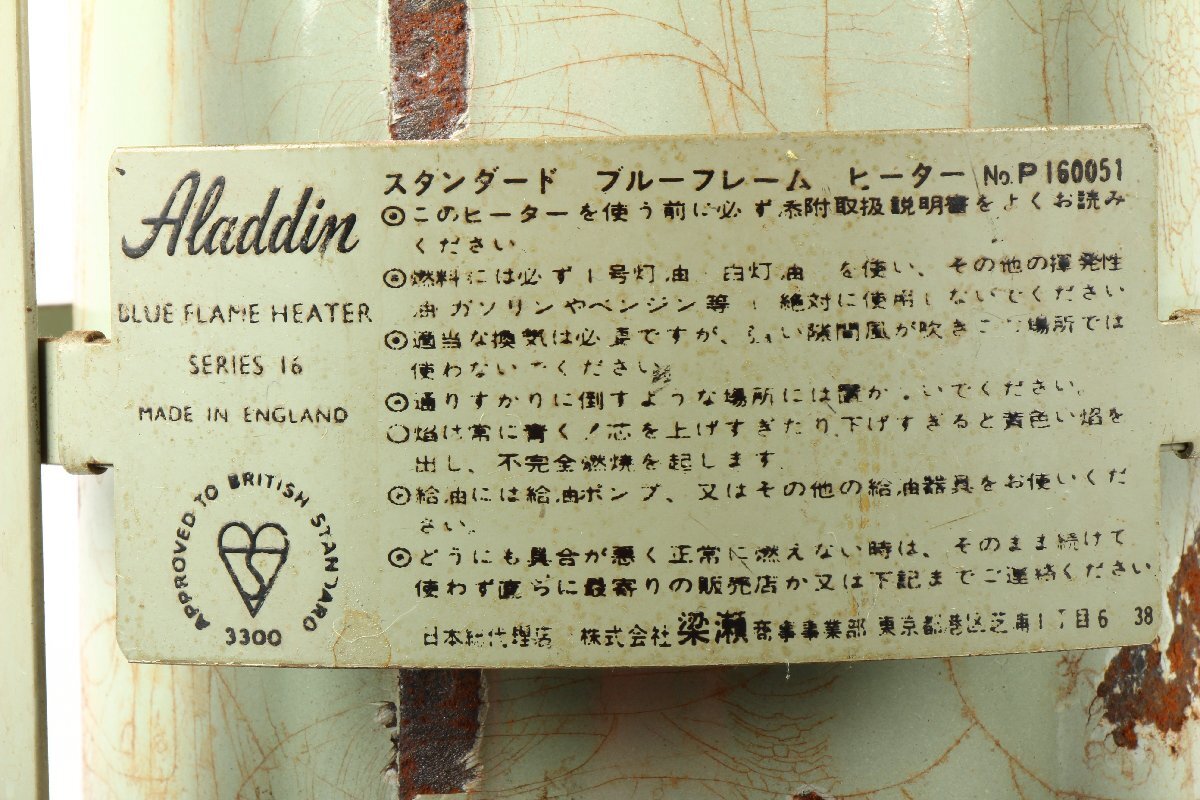 Aladdin
BLUE FLAME HEATER
SERIES 16
MADE IN ENGLAND
APPROVED TO BRITISH STANDARD
3300
スタンダード ブルーフレーム ヒーター No.P160051
◎このヒーターを使う前に必ず添附取扱説明書をよくお読み
ください
◎燃料には必ず1号灯油 白灯油 を使い、その他の揮発性
油 ガソリンやベンジン等 絶対に使用しないでください
◎適当な換気は必要ですが、強い隙間風が吹きこむ場所では
使わないでください
◎通りすがりに倒すような場所には置かないでください。
○焔は常に青く!芯を上げすぎたり,下げすぎると黄色い焔を
出し、不完全燃焼を起します
◎給油には給油ポンプ、又はその他の給油器具をお使いくだ
さい。
◎どうにも具合が悪く正常に燃えない時は、そのまま続けて
使わず直ちに最寄りの販売店か又は下記までご連絡ください
日本総代理店 株式会社 梁瀬 商事事業部 東京都港区芝浦1丁目6 38